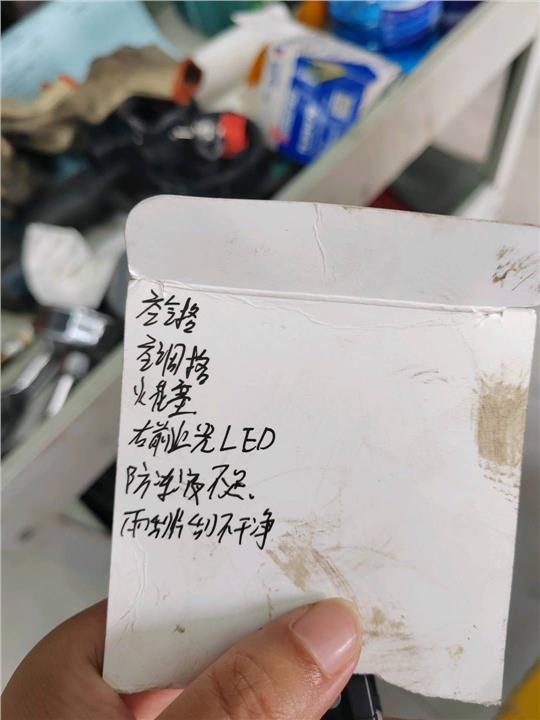 空气格
空调格
火花塞
右前近光LED
防冻液不足、
雨刮片刮不干净